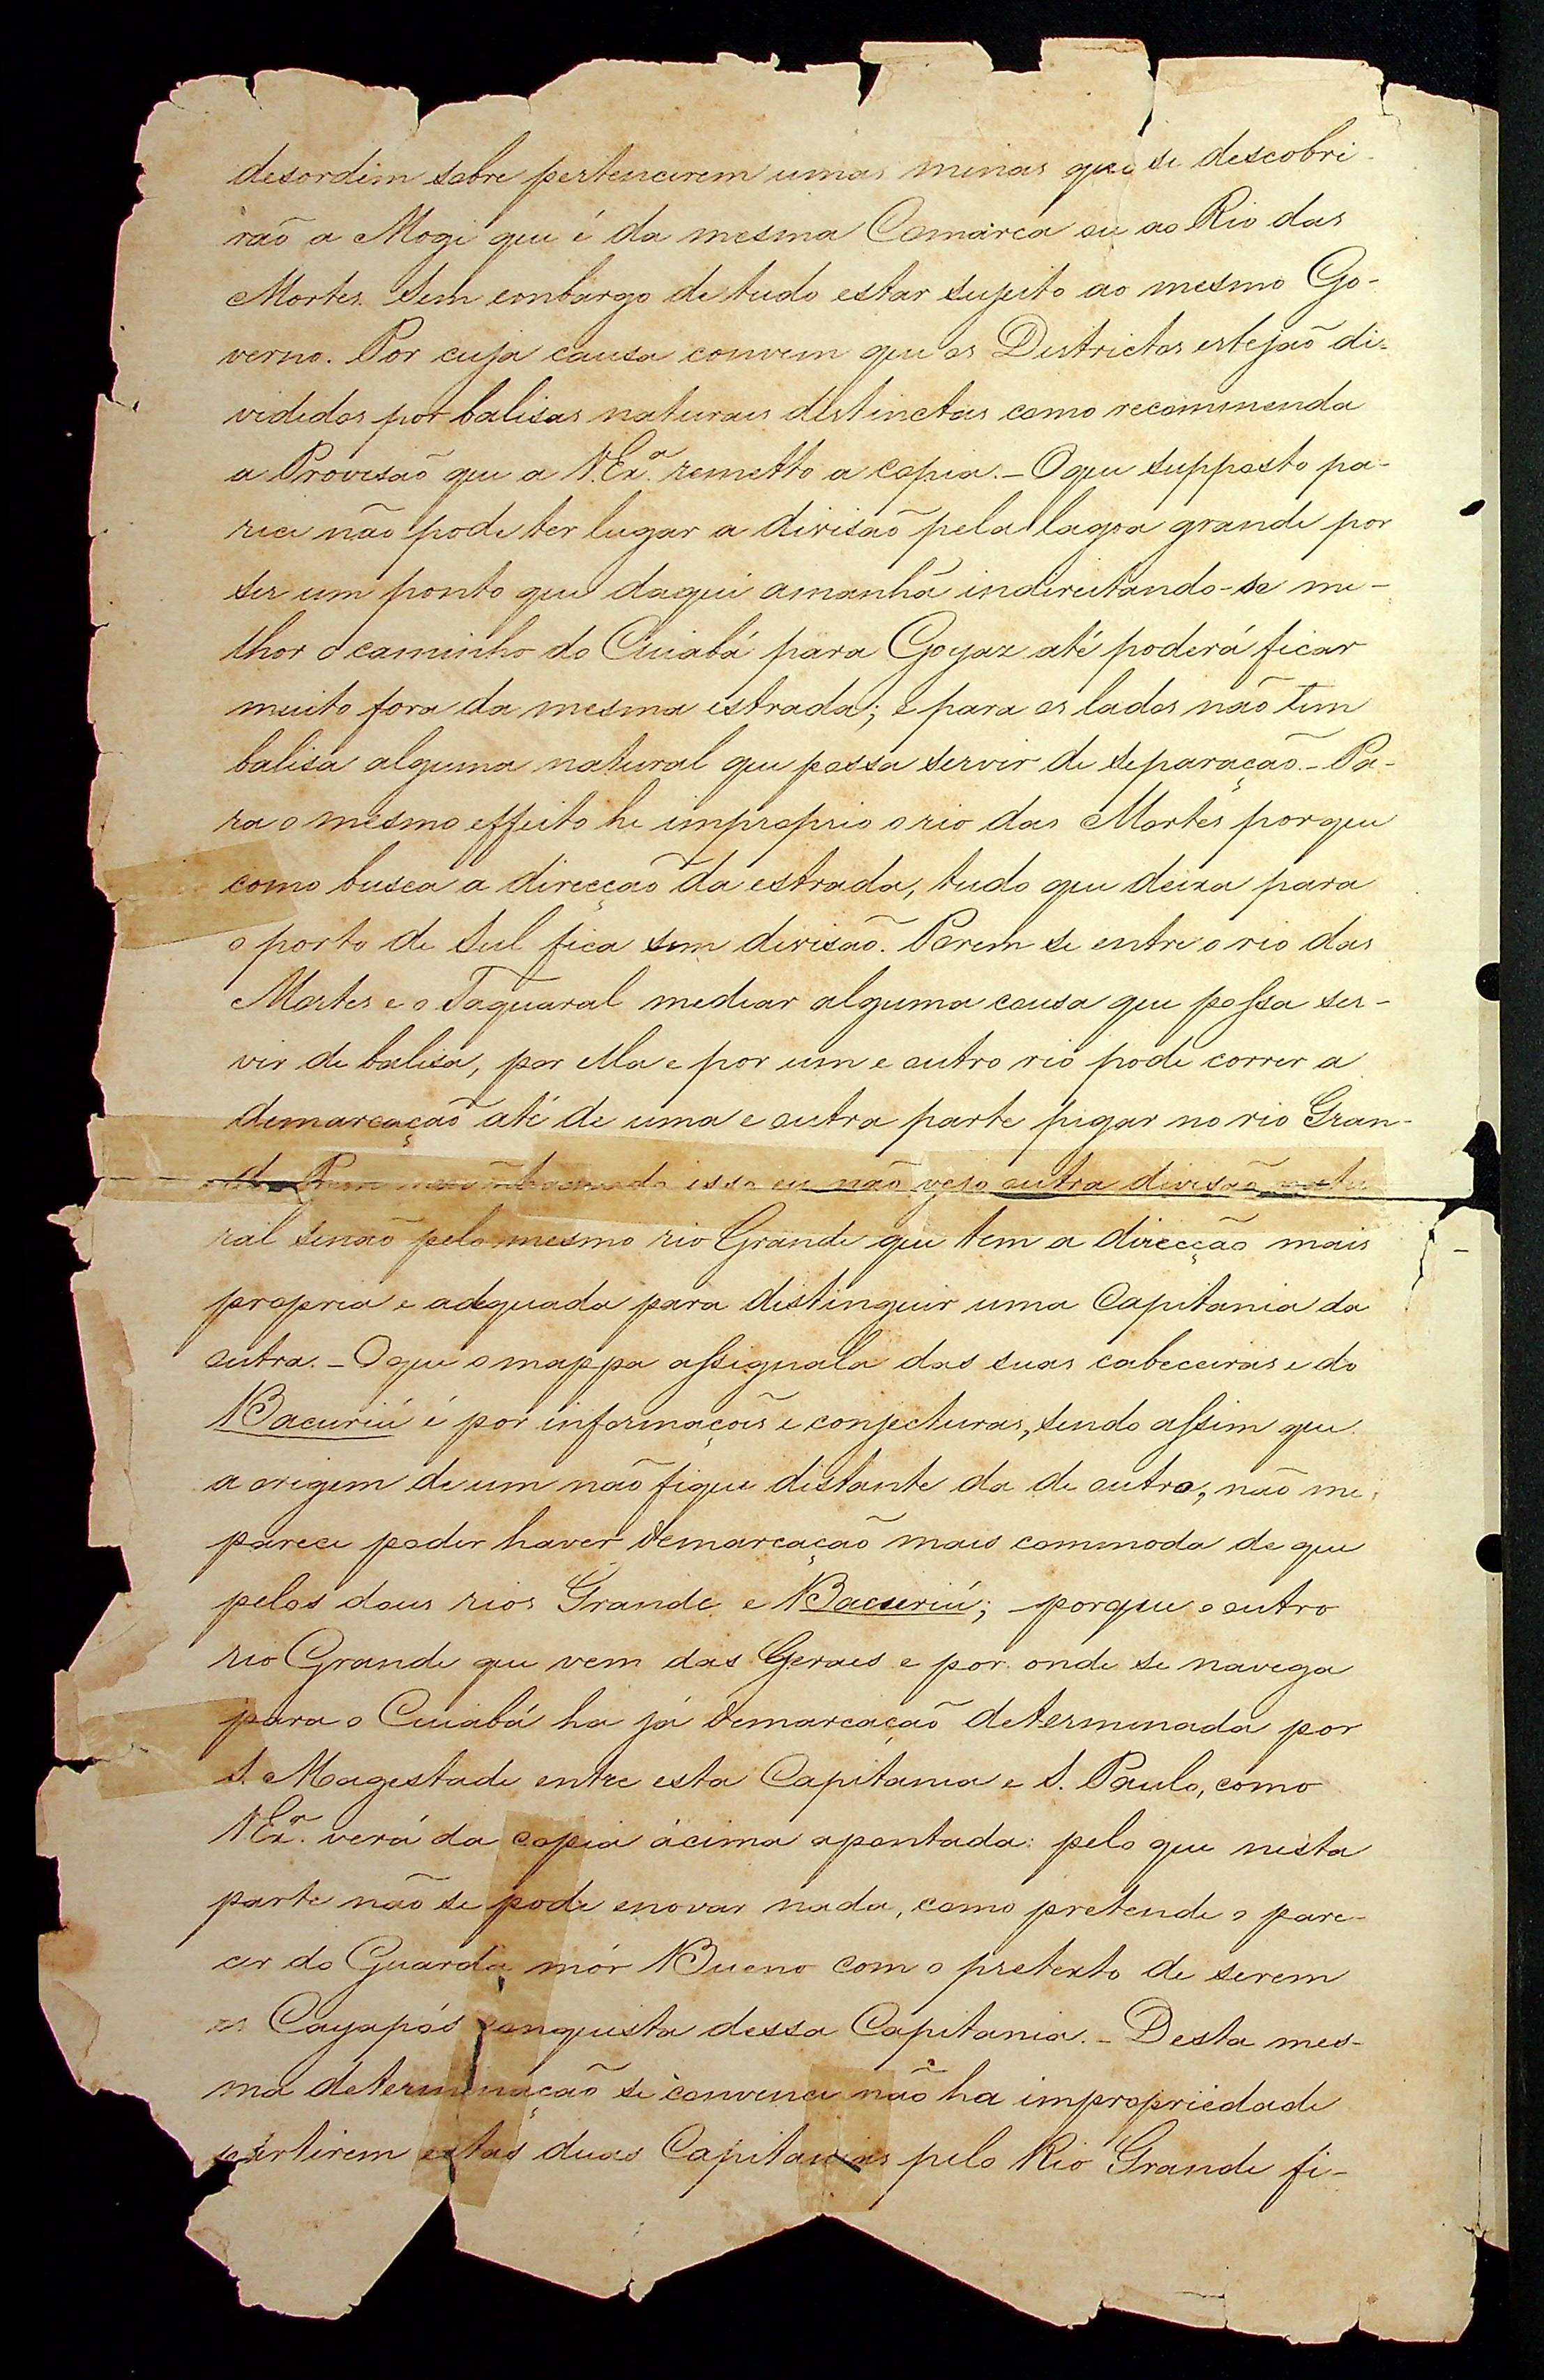 desordem sobre pertencerem umas minas que se descobri-
rão a Mogi que é da mesma Comarca ou ao Rio das
Mortes. Sem embargo de tudo estar sujeito ao mesmo Go-
verno. Por cuja causa convem que os Districtos estejão di-
vididos por balisas naturaes distinctas como recommenda
a Provisão que a V. Exª. remetto a copia. – O que supposto pa-
rece não pode ter lugar a divisão pela lagoa grande por
ser um ponto que daqui amanhã indireitando-se me-
lhor o caminho do Cuiabá para Goyaz até poderá ficar
muito fora da mesma estrada; e para os lados não tem
balisa alguma natural que possa servir de separação. – Pa-
ra o mesmo effeito he improprio o rio das Mortes porque
como busca a direcção da estrada, tudo que deixa para
o porto de Sul fica sem divisão. Porem se entre o rio das
Mortes e o Taquaral mediar alguma cousa que possa ser-
vir de balisa, por ella e por um e outro rio pode correr a
demarcação até de uma e outra parte pegar no rio Gran-
de. Porem não isso eu não vejo outra divisão natu-
ral senão pelo mesmo rio Grande que tem a direcção mais
propria e adequada para distinguir uma Capitania da
outra. – O que o mappa assignala das suas cabeceiras e do
Bacuriú é por informações e conjecturas, sendo assim que
a origem de um não fique distante da de outro, não me
parece poder haver demarcação mais commoda do que
pelos dous rios Grande e Bacuriú; porque o outro
rio Grande que vem das Geraes e por onde se navega
para o Cuiabá ha já demarcação determinada por
S. Magestade entre esta Capitania e S. Paulo, como
V. Exª. verá da copia ácima apontada: pelo que nesta
parte não se pode enovar nada, como pretende o pare-
cer do Guarda mór Bueno com o pretexto de serem
os Cayapós conquista dessa Capitania. – Desta mes-
ma determinação se convence não ha impropriedade
partirem estas duas Capitanias pelo Rio Grande fi-